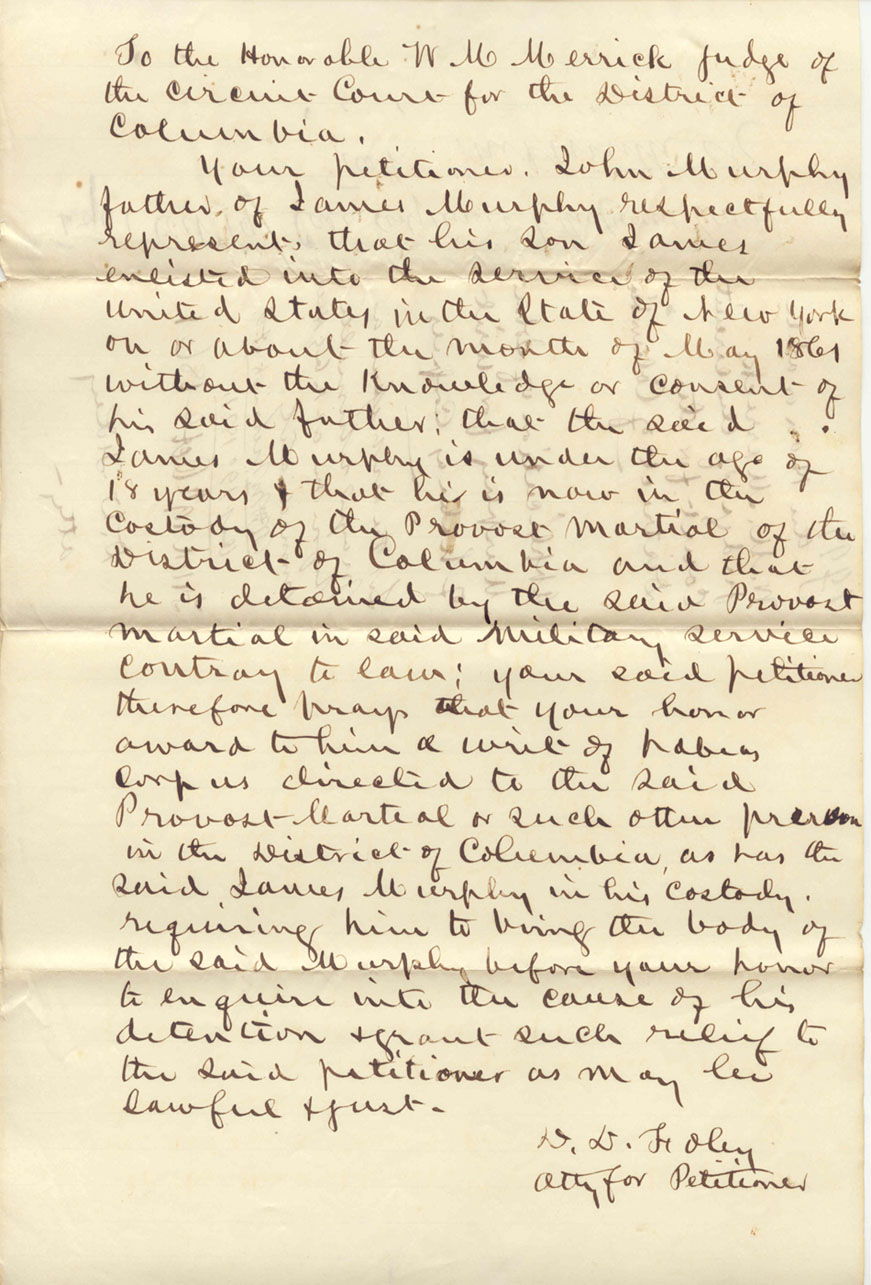 To the Honorable W M Merrick Judge of
the Circuit Court for the District of
Columbia.
Your petitioner, John Murphy
father, of James Murphy respectfully
represents that his son James
enlisted into the service of the
United States in the State of New York
on or about the month of May 1861
without the Knowledge or consent of
his said father; that the said
James Murphy is under the age of
18 years & that he is now in the
Custody of the Provost Martial of the
District of Columbia and that
he is detained by the said Provost
Martial in said Military service
Contray to law; your said petitioner
therefore prays that your honor
award to him a writ of habeas
Corpus directed to the said
Provost Martial or such other person
in the District of Columbia, as has the
said James Murphy in his custody.
requiring him to bring the body of
the said Murphy before your honor
to enquire into the cause of his
detention & grant such relief to
the said petitioner as may be
lawful & just.
D. D. Foley
Atty for Petitioner